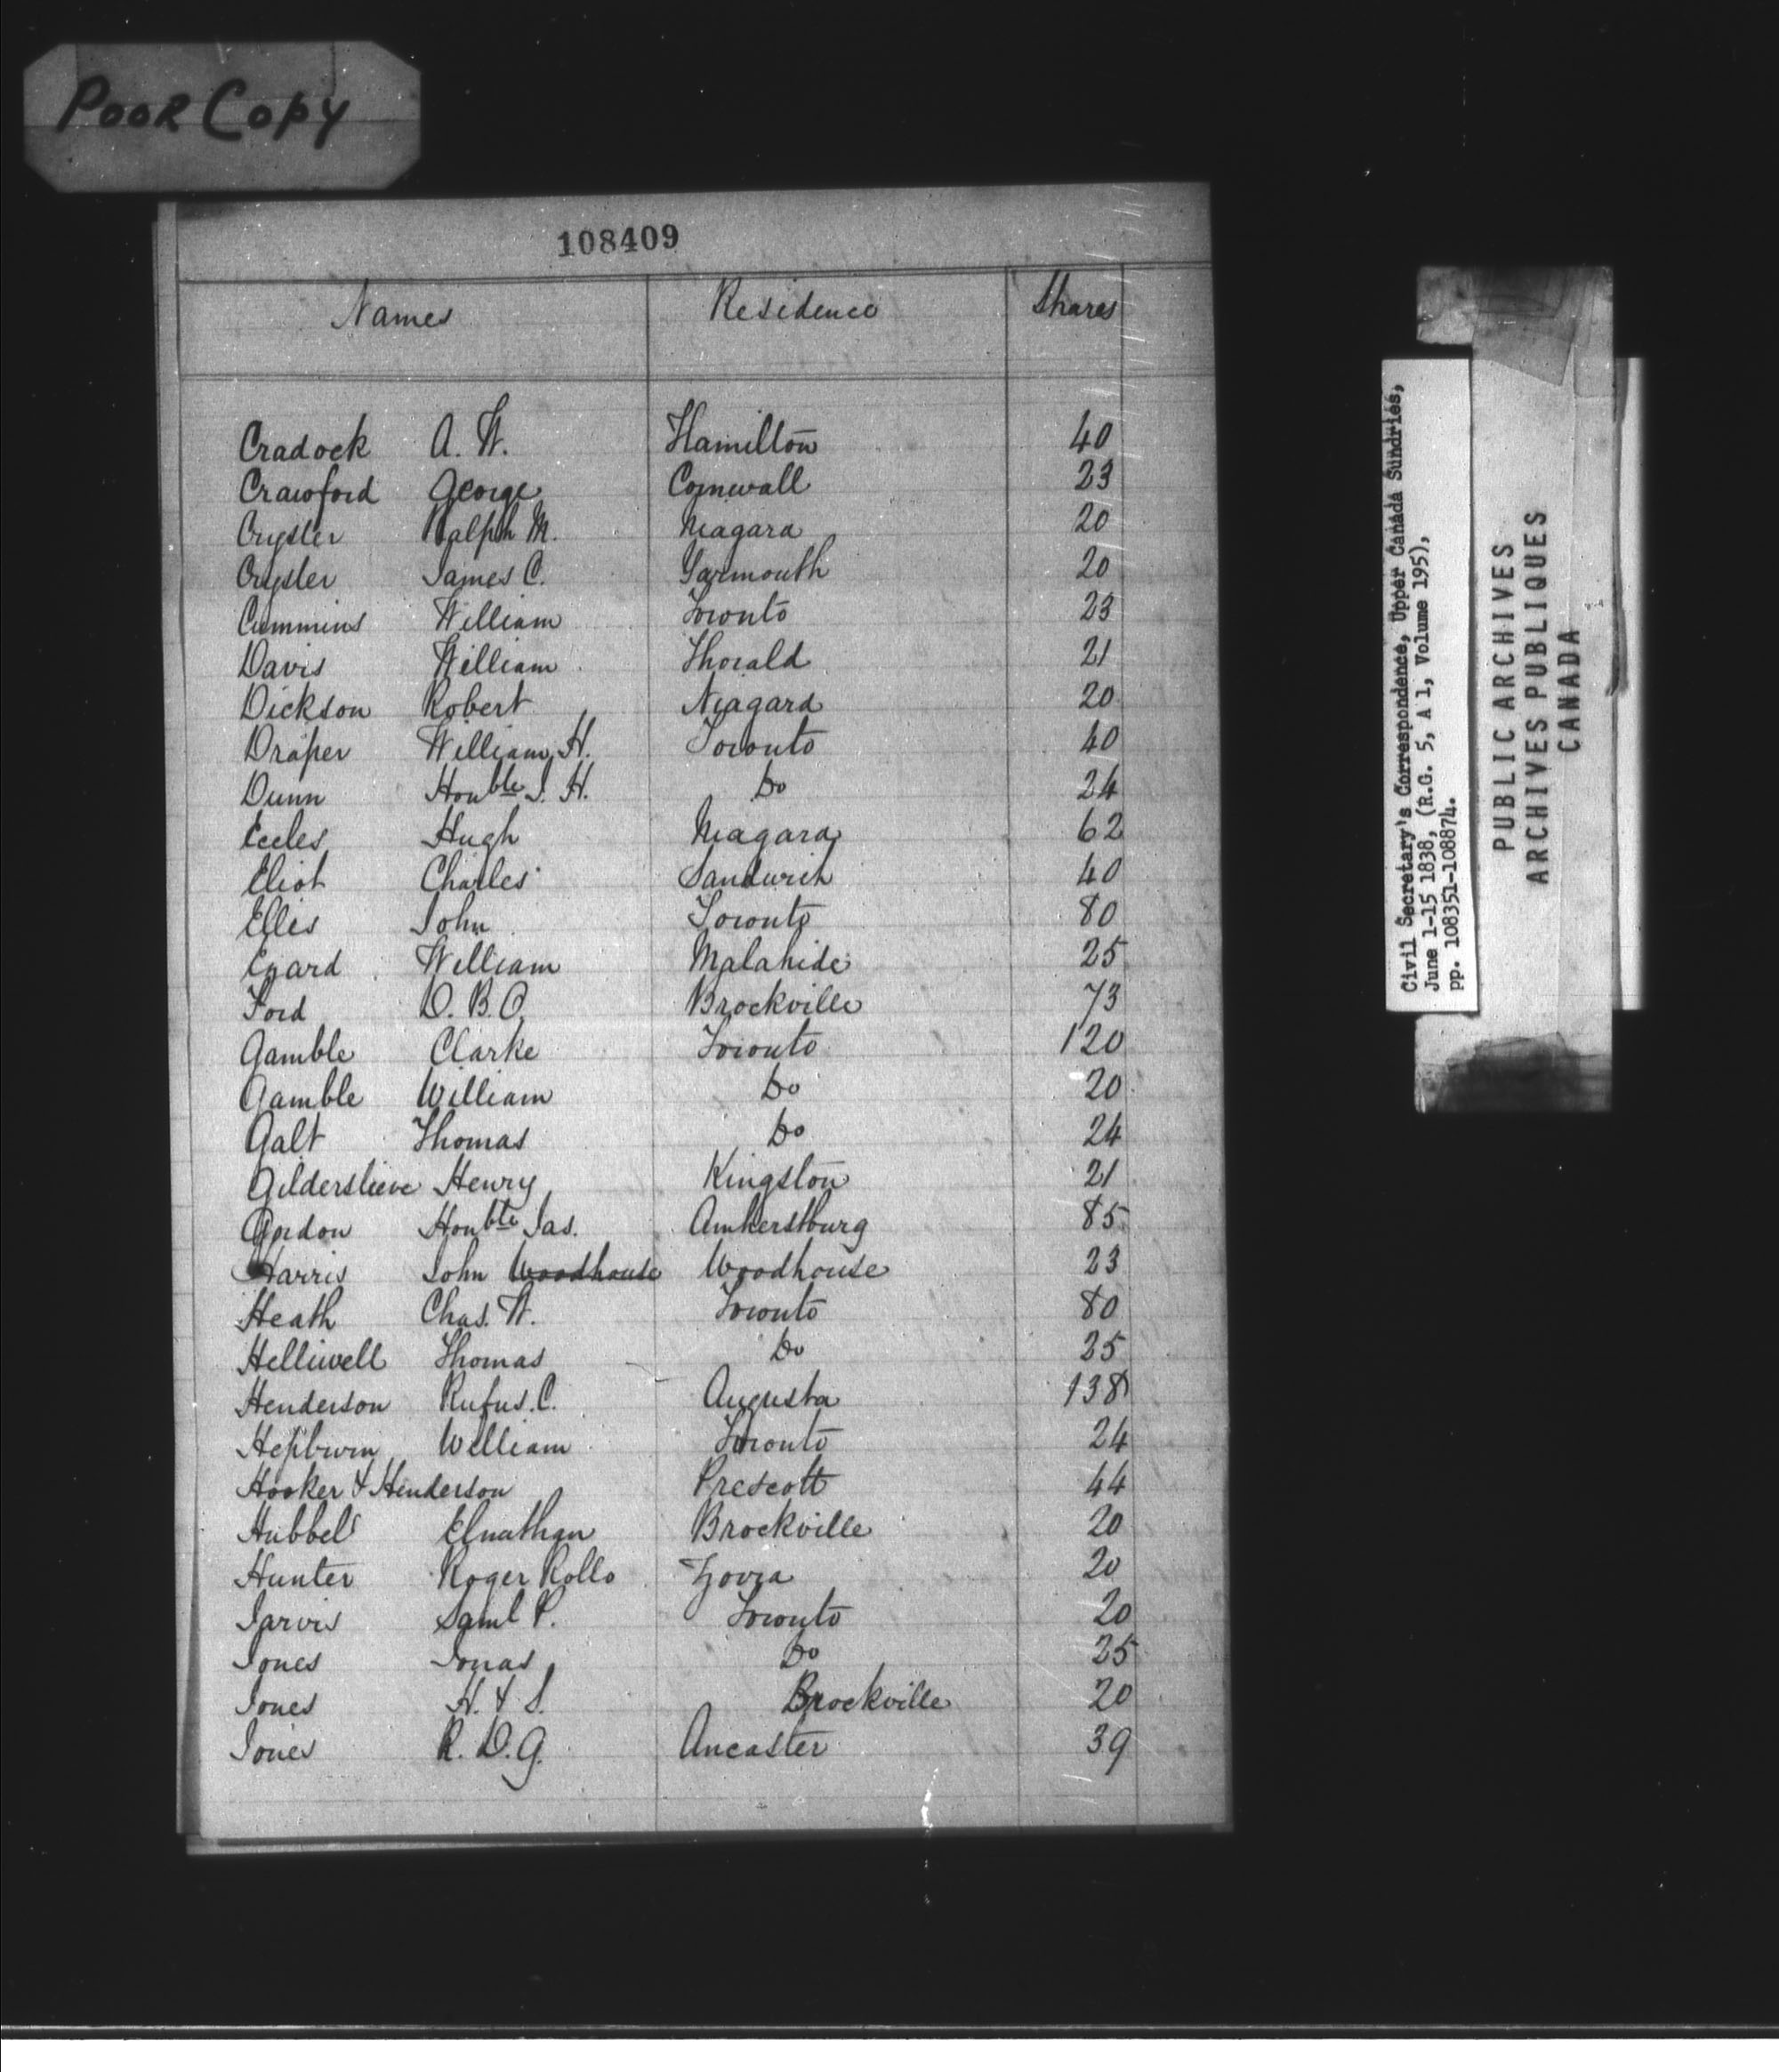 POOR COPY
108409
Names Residence Shares
Cradock A. W. Hamilton 40
Crawford George Cornwall 23
Crysler Ralph M. Niagara 20
Crysler James C. Yarmouth 20
Cummins William Toronto 23
Davis William Thorald 21
Dickson Robert Niagara 20
Draper William H. Toronto 40
Dunn Honble J. H. Do 24
Eccles Hugh Niagara 62
Eliot Charles Sandwich 40
Ellis John Toronto 80
William Malahide 25
Ford D. B. O. Brockville 73
Gamble Clarke Toronto 120
Gamble William Do 20
Galt Thomas Do 24
Gilderslieve Henry Kingston 21
Gordon Honble Jas. Amherstburg 85
Harris John Woodhouse Woodhouse 23
Heath Chas. W. Toronto 80
Helliwell Thomas Do 25
Henderson Rufus. C. Augusta 138
Hepburn William Toronto 24
Hooker & Henderson Prescott 44
Hubbell Elnathan Brockville 20
Hunter Roger Rollo 20
Jarvis Saml P. Toronto 20
Jones Jonas Do 25
Jones H. & S. Brockville 20
Jones R. D. G. Ancaster 39
Civil Secretary's Correspondence, Upper Canada Sundries,
June 1-15 1838, (R.G. 5, A 1, Volume 195),
pp. 108351-108874.
PUBLIC ARCHIVES
ARCHIVES PUBLIQUES
CANADA